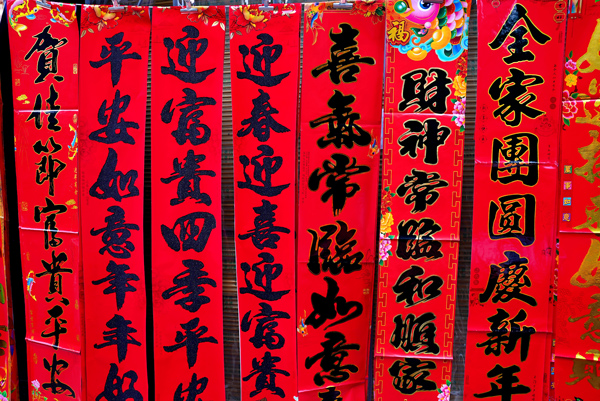 賀佳節富貴平安
平安如意年年如
迎富貴四季平安
迎春迎喜迎富貴
喜氣常臨如意
福
財神常臨和順家
全家團圓慶新年